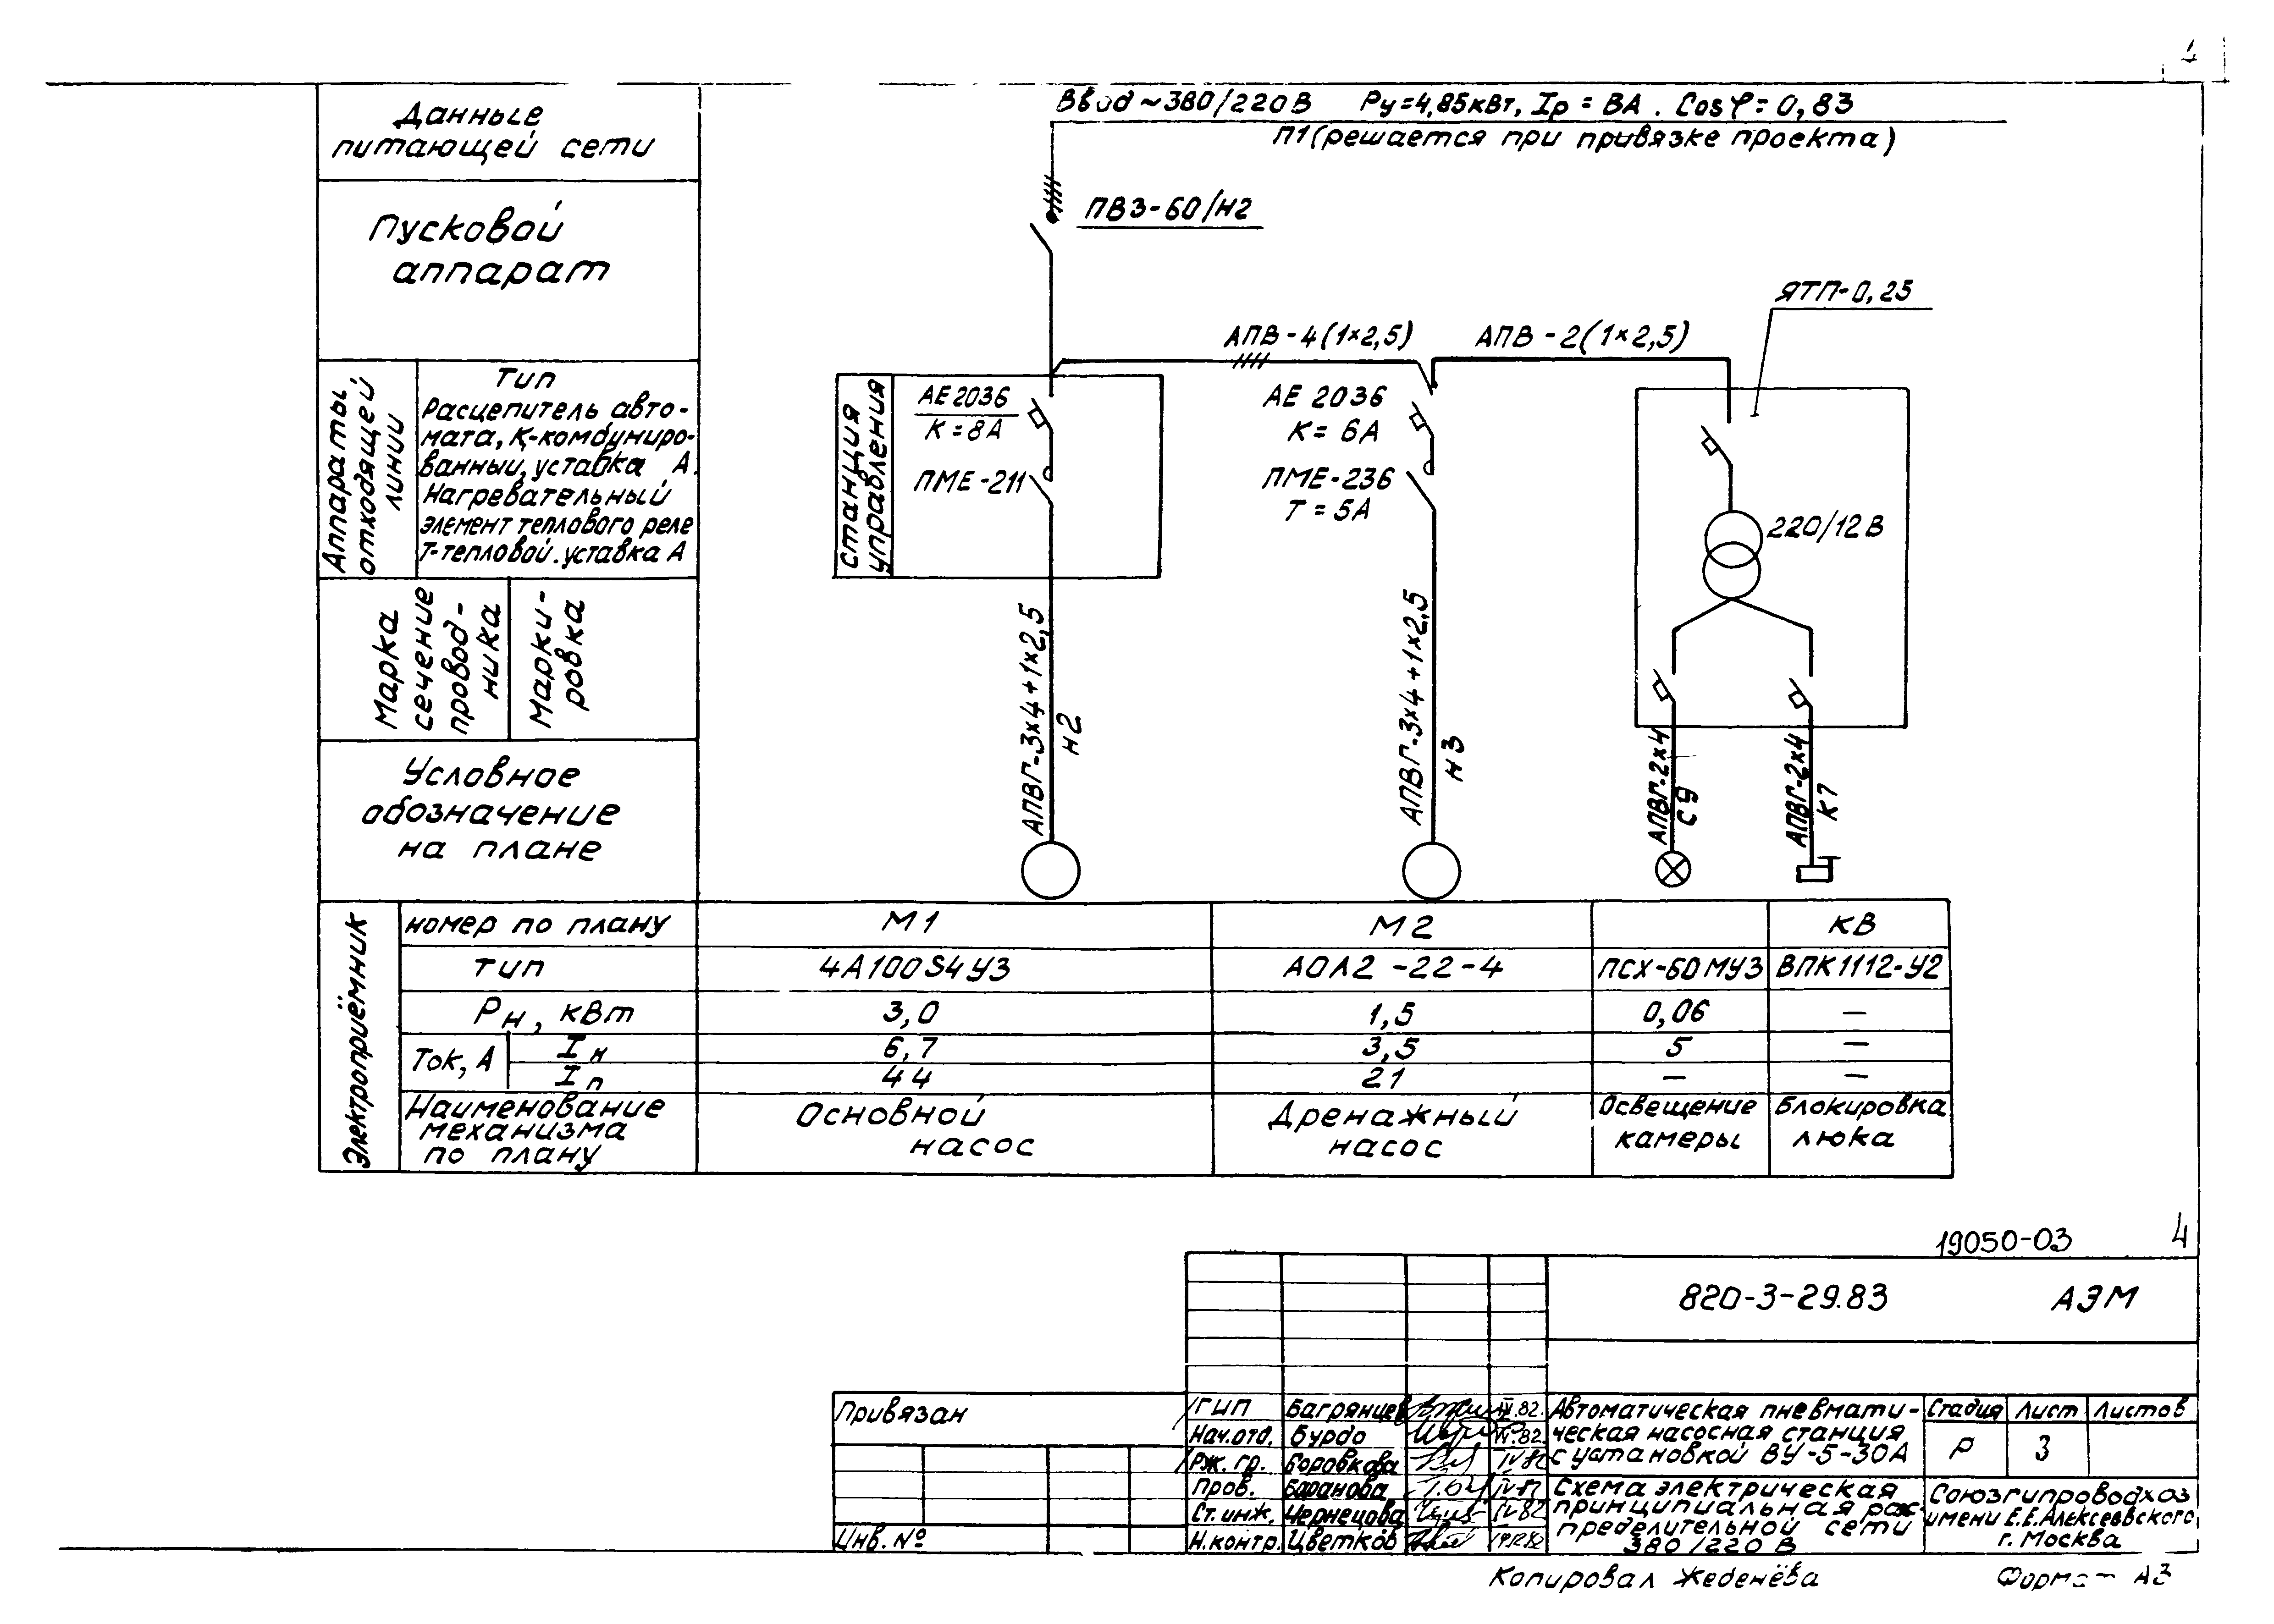 4
Данные
питающей сети
Ввод ~380/220В Ру=4,85кВт, Iр = ВА. Cosφ= 0,83
П1 (решается при привязке проекта)
Пусковой
аппарат
ПВ3-60/Н2
ЯТП-0,25
АПВ-4(1×2,5)
АПВ-2(1×2,5)
Аппараты
отходящей
линии
Тип
Расцепитель авто-
мата, К-комбуниро-
ванный, уставка А.
Нагревательный
элемент теплового реле
Т-тепловой. уставка А
станция
управления
АЕ2036
К=8А
ПМЕ-211
АЕ 2036
К= 6А
ПМЕ-236
Т = 5А
220/12В
Марка
сечение
провод-
ника
Марки-
ровка
АПВГ-3×4+1×2,5
Н2
АПВГ-3×4+1×2,5
Н3
АПВГ-2×4
С9
АПВГ-2×4
К7
Условное
обозначение
на плане
Электроприёмник
номер по плану М1 М2 КВ
тип 4А100S4У3 АОЛ2-22-4 ПСХ-60МУ3 ВПК1112-У2
Рн, кВт 3,0 1,5 0,06 —
Ток, А Iн 6,7 3,5 5 —
Iп 44 21 — —
Наименование
механизма
по плану
Основной
насос
Дренажный
насос
Освещение
камеры
Блокировка
люка
19050-03 4
820-3-29.83 АЭМ
Привязан
Инв. №
ГИП Багрянцев IV.82.
Нач.отд. Бурдо IV.82.
Рж. гр. Боровкова IV82
Пров. Баранова
Ст. инж. Чернецова IV82
Н.контр. Цветков
Автоматическая пневмати-
ческая насосная станция
с установкой ВУ-5-30А
Стадия Лист Листов
Р 3
Схема электрическая
принципиальная рас-
пределительной сети
380/220 В
Союзгипроводхоз
имени Е.Е.Алексеевского
г. Москва
Копировал Жеденёва Формат А3